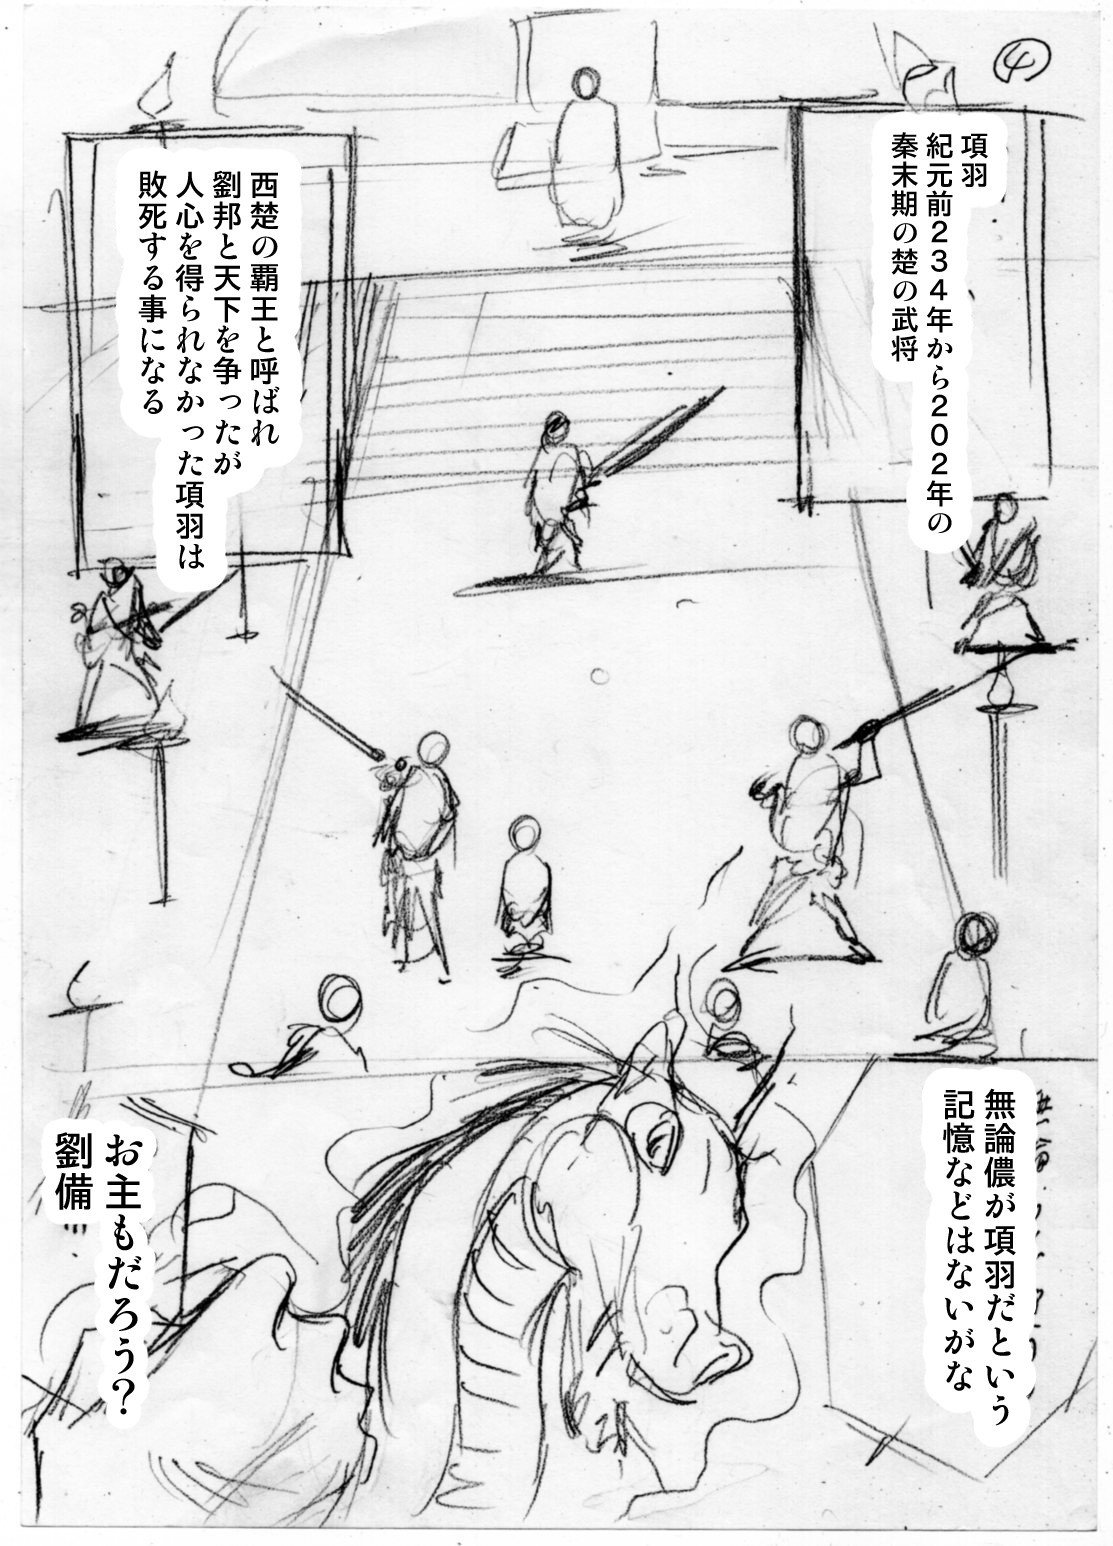 4
項羽
紀元前234年から202年の
秦末期の楚の武将
西楚の覇王と呼ばれ
劉邦と天下を争ったが
人心を得られなかった項羽は
敗死する事になる
無論儂が項羽だという
記憶などはないがな
お主もだろう?
劉備